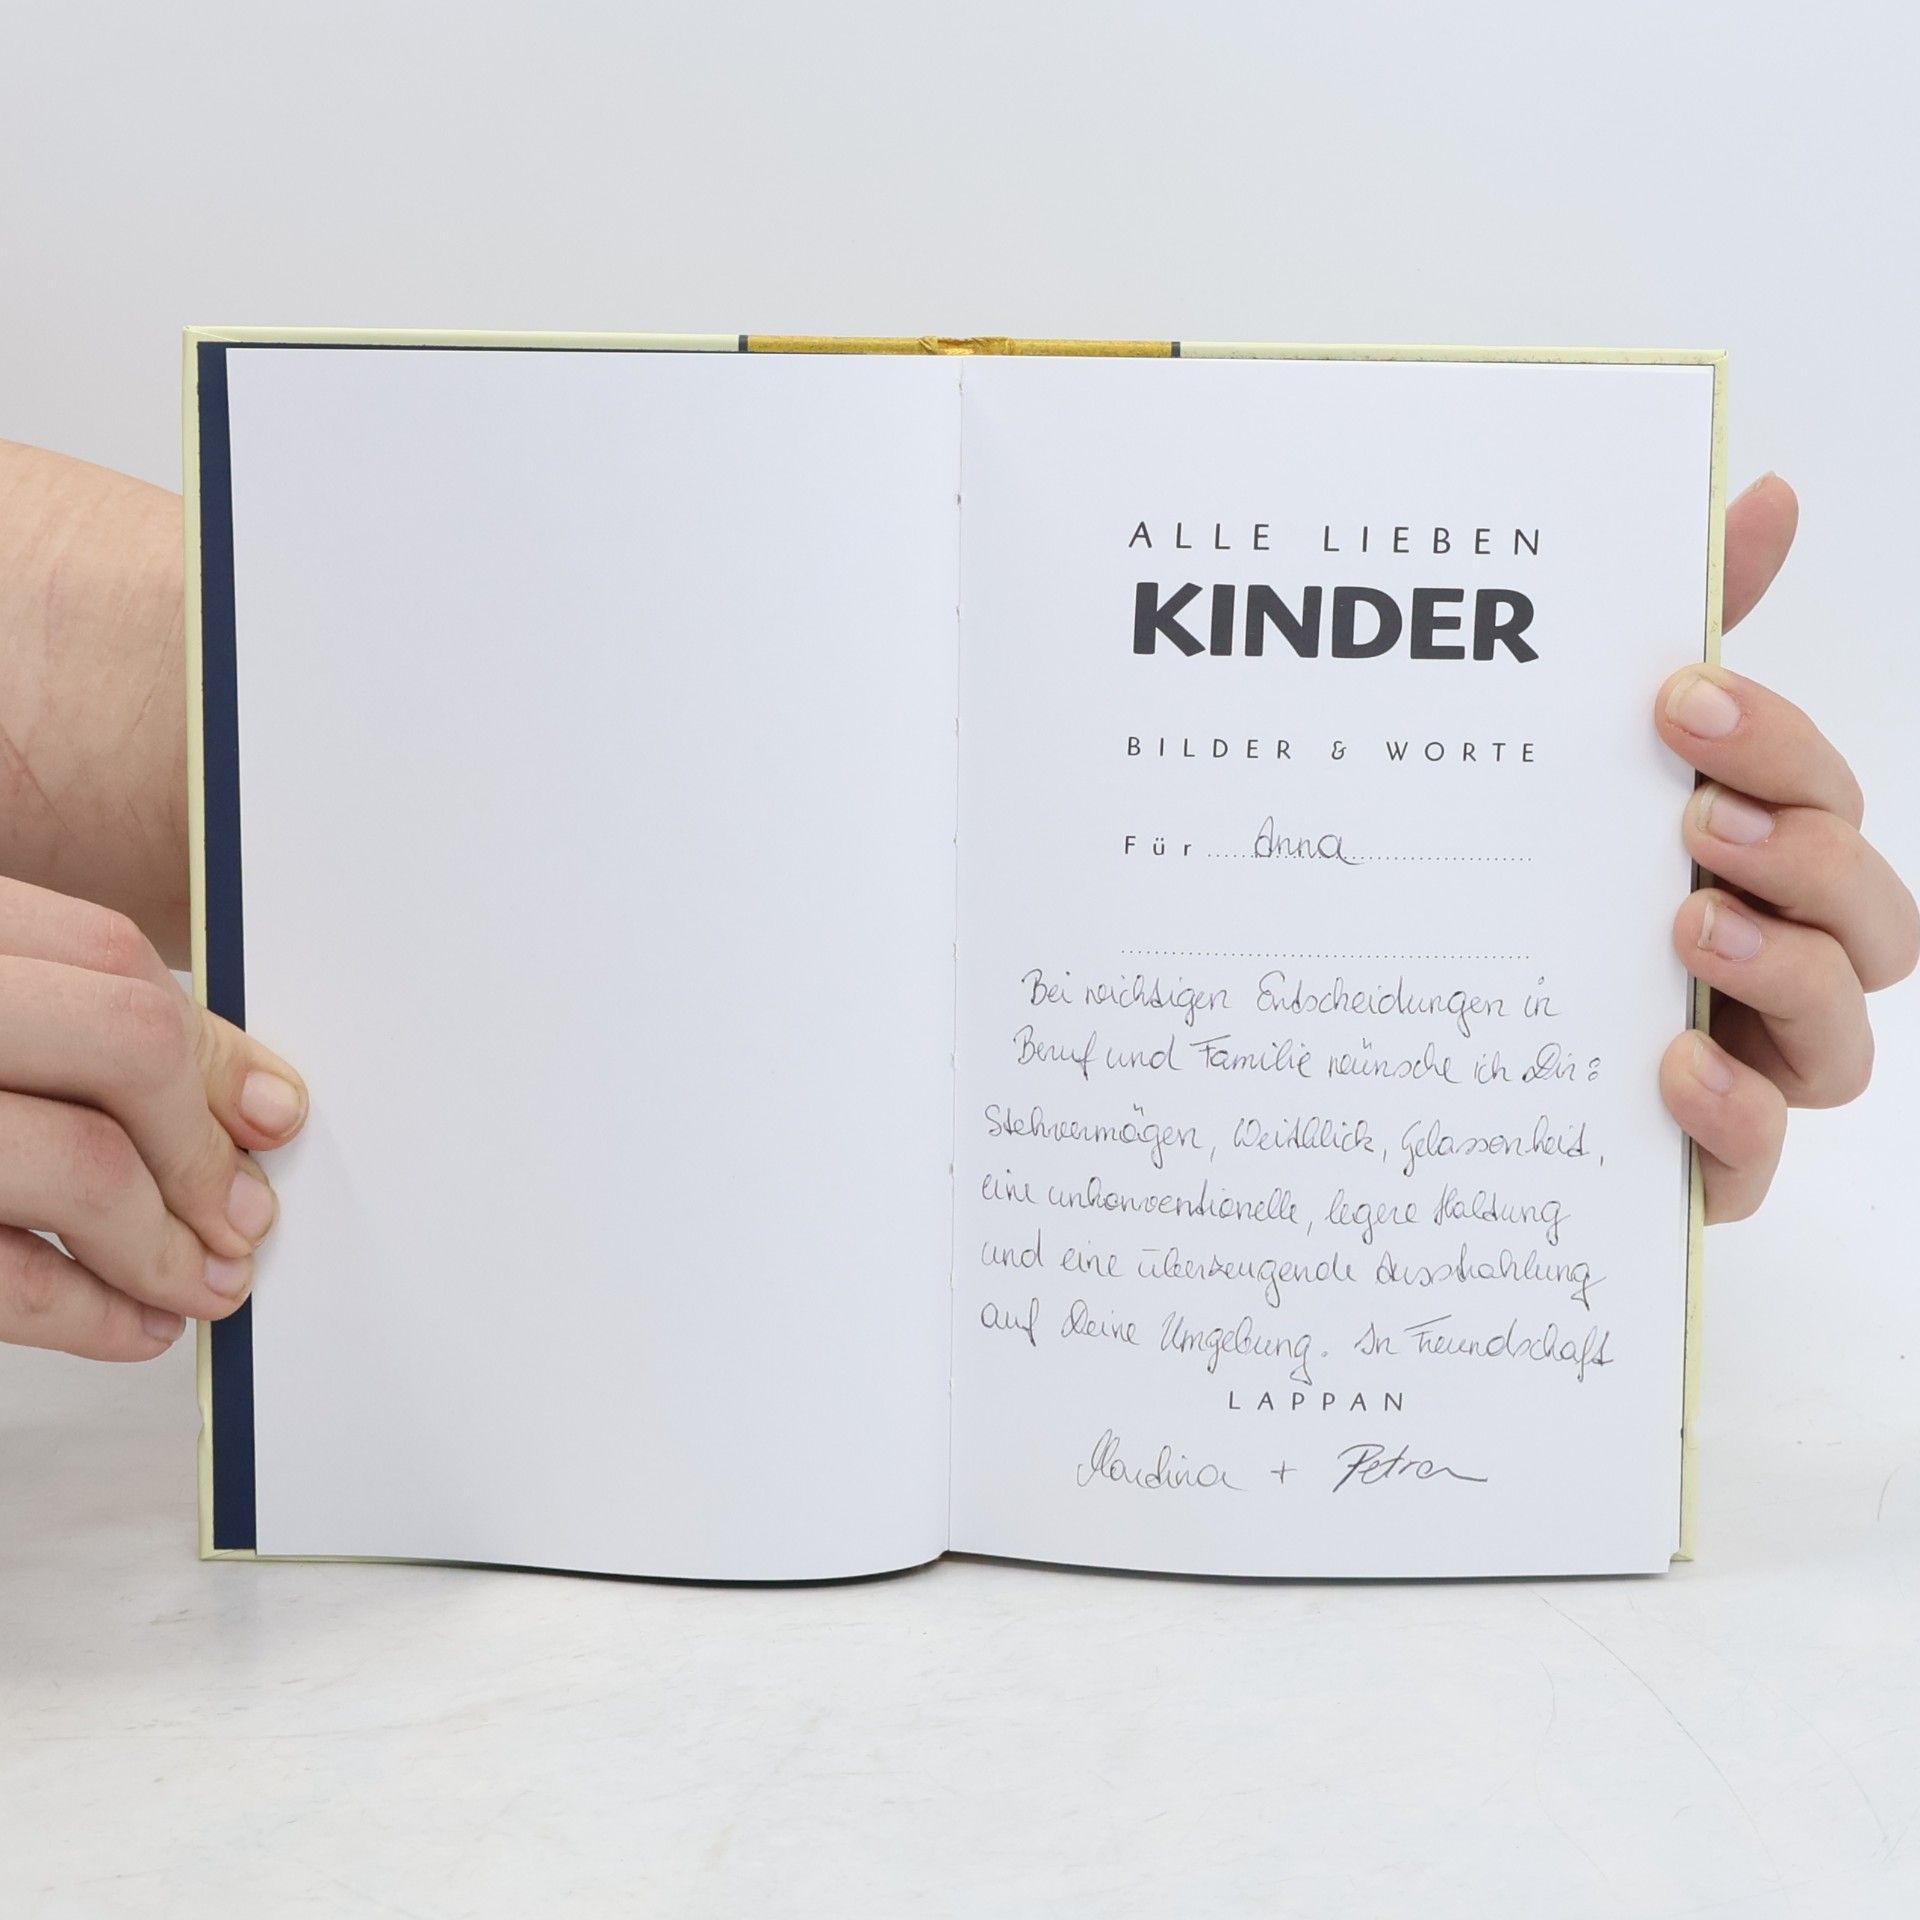 ALLE LIEBEN
KINDER
BILDER & WORTE
Für Anna
Bei wichtigen Entscheidungen in
Beruf und Familie wünsche ich Dir:
Stehvermögen, Weitblick, Gelassenheit,
eine unkonventionelle, legere Haltung
und eine überzeugende Ausstrahlung
auf Deine Umgebung. In Freundschaft
LAPPAN
+ Petra